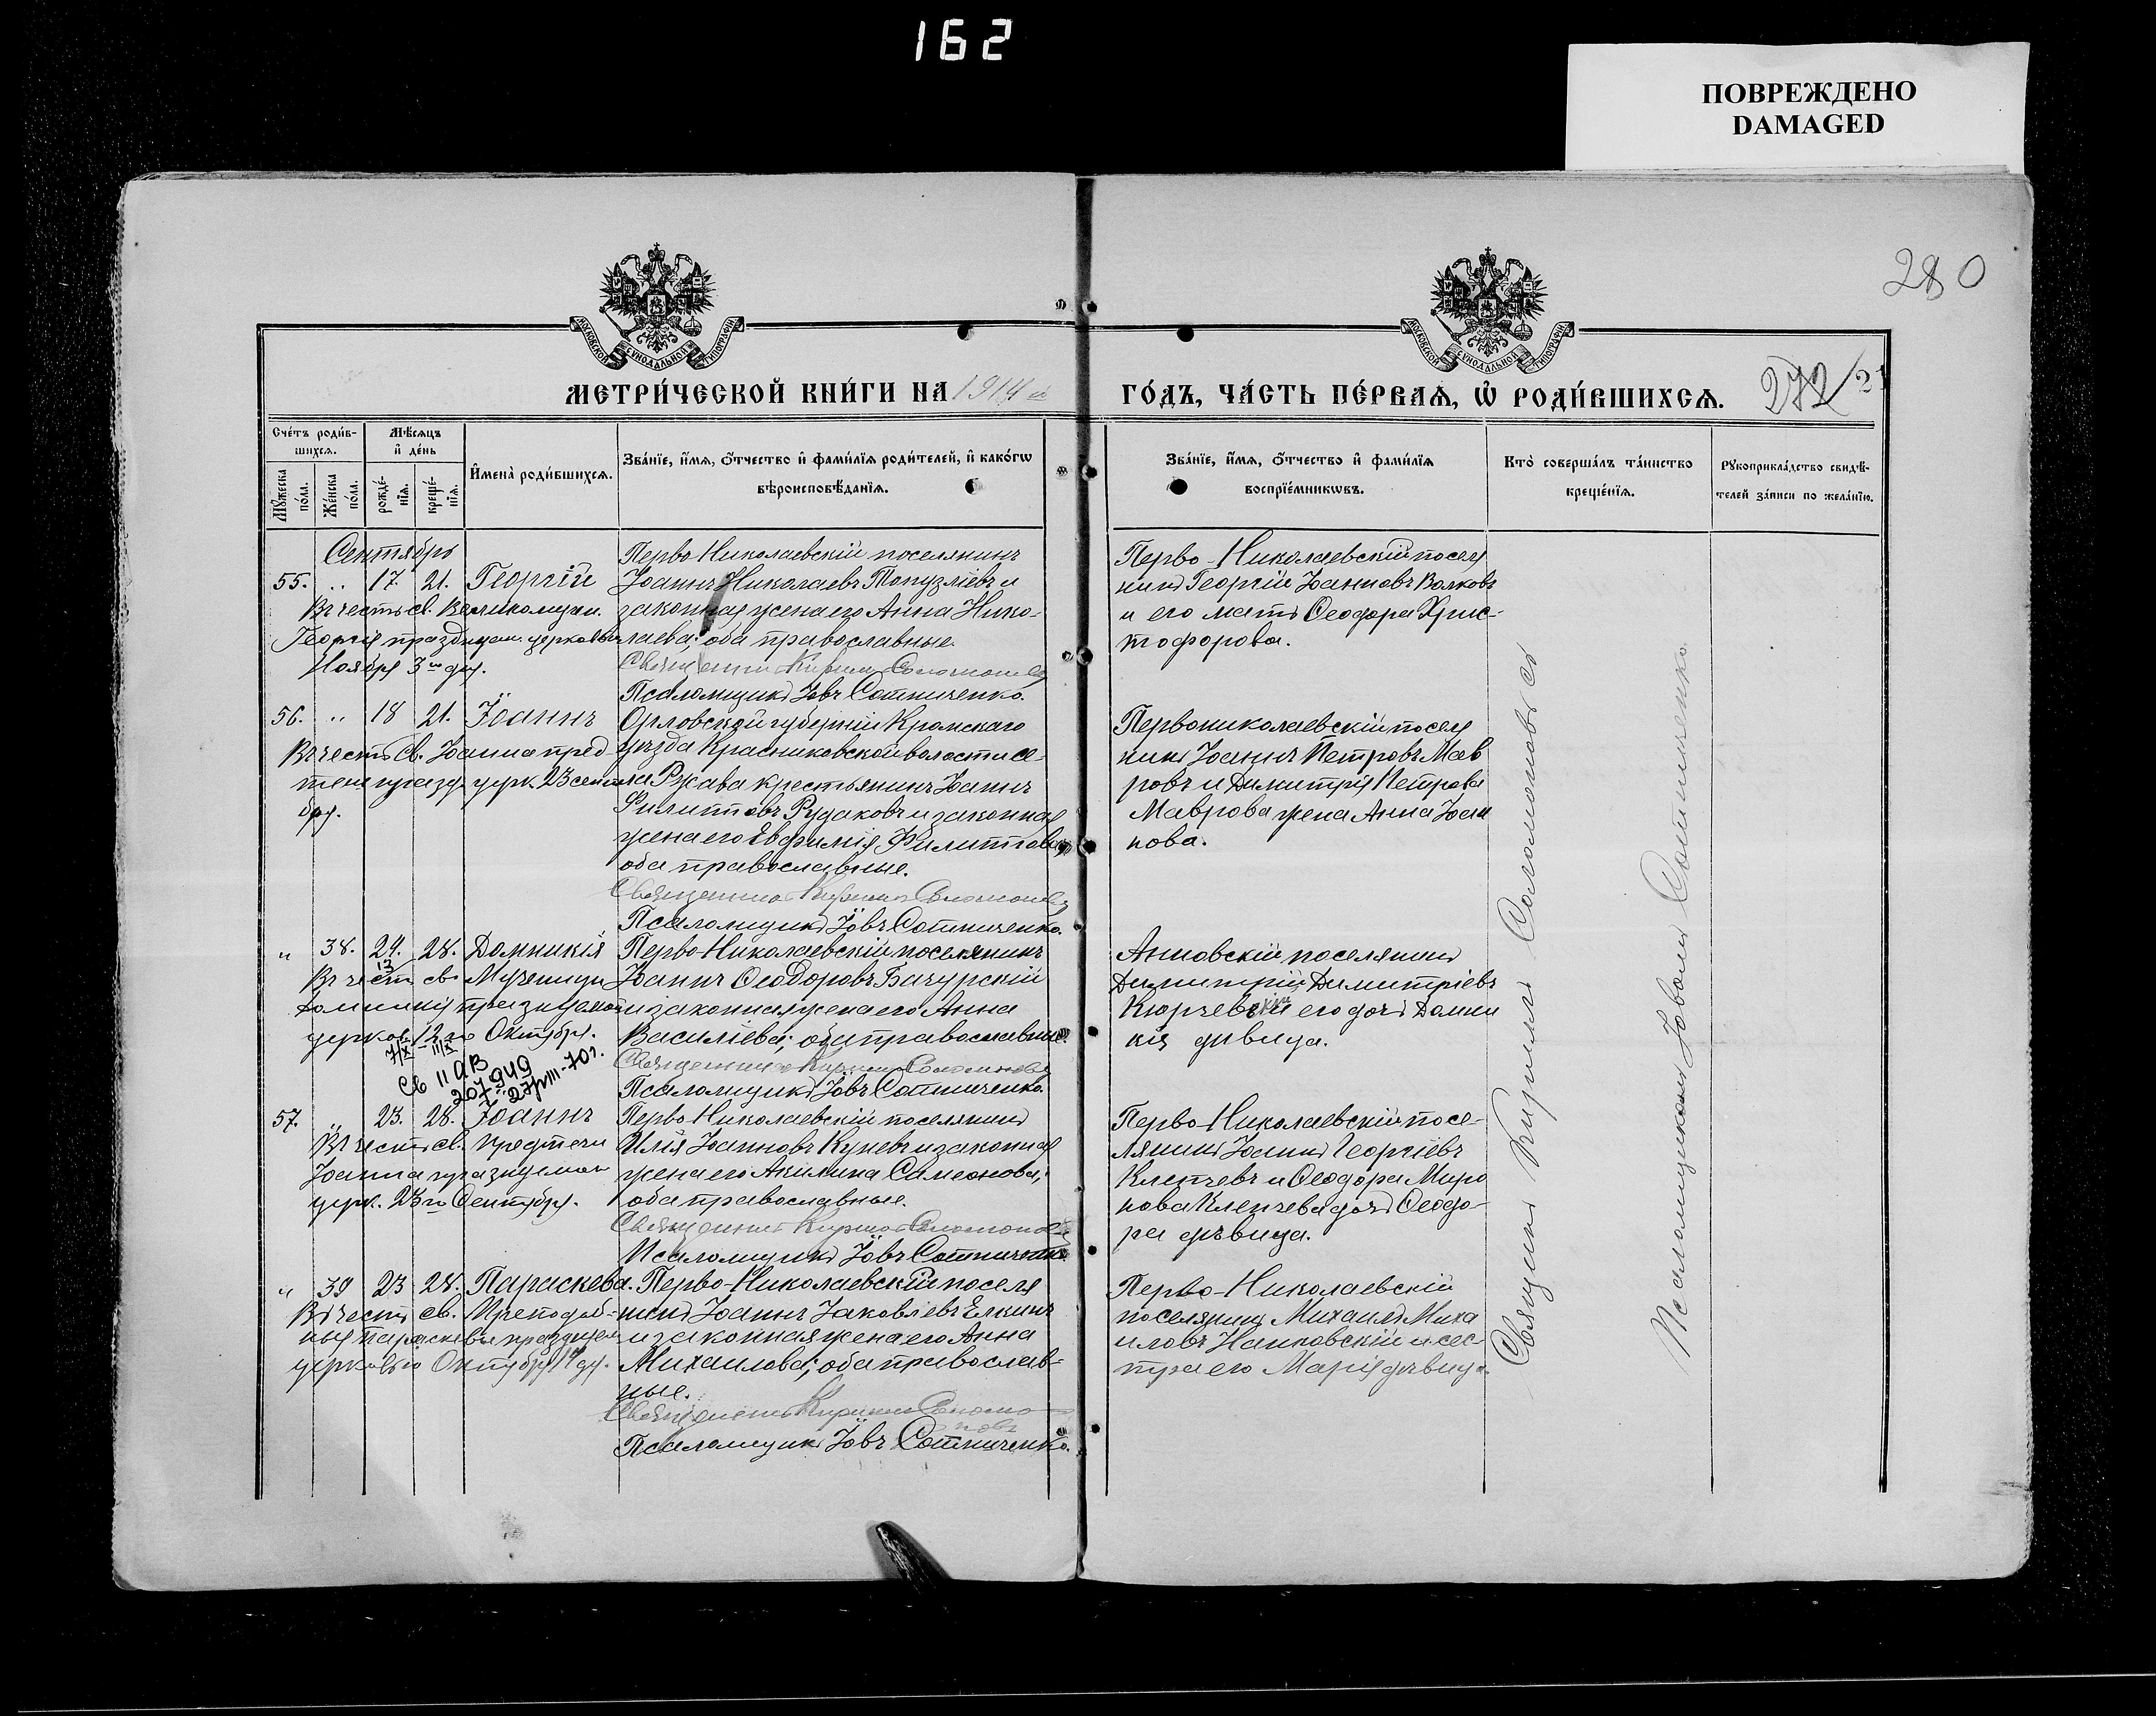 162
ПОВРЕЖДЕНО
DAMAGED
280
МОСКОВСКОЙ СѴНОДАЛЬНОЙ ТИПОГРАФІИ
МОСКОВСКОЙ СѴНОДАЛЬНОЙ ТИПОГРАФІИ
МЕТРИ́ЧЕСКОЙ КНИ́ГИ НА 1914 й
ГО́ДЪ, ЧА́СТЬ ПЕ́РВАѦ, Ѡ҆ РОДИ́ВШИХСѦ.
272
Сче́тъ роди́в-
шихсѧ.
Мѣ́сѧцъ
и҆ де́нь
Мꙋ́жеска
по́ла.
Же́нска
по́ла.
рожде́-
нїѧ.
креще́-
нїѧ.
И҆мена̀ роди́вшихсѧ.
Зва́нїе, и҆́мѧ, ѻ҆́тчество и҆ фами́лїѧ роди́телей, и҆ како́гѡ
вѣроисповѣ́данїѧ.
Зва́нїе, и҆́мѧ, ѻ҆́тчество и҆ фами́лїѧ
воспрїе́мникѡвъ.
Кто̀ соверша́лъ та́инство
креще́нїѧ.
Рꙋкоприкла́дство свидѣ́-
телей за́писи по жела́нїю.
Сентябрь
55. „ 17. 21. Георгій
Въ честь св. Великомуч.
Георгія празднуем. церковью
Ноября 3го дня.
Перво-Николаевскій поселянинъ
Іоаннъ Николаевъ Топузліевъ и
законная жена его Анна Нико-
лаева; оба православные.
Священник Кирилл Соломонов
Псаломщикъ Іовъ Сотниченко.
Перво-Николаевскій поселя
нинъ Георгій Іоанновъ Волковъ
и его мать Ѳеодора Хрис-
тофорова.
56. „ 18 21. Іоаннъ
Въ честь Св. Іоанна пред-
течи празд. церк. 23 сентя
бря.
Орловской губерніи Кромскаго
уѣзда Красниковской волости се-
ла Русава крестьянинъ Іоаннъ
Филипповъ Рудаковъ и законная
жена его Евфимія Филиппова
оба православные.
Священникъ Кирилл Соломонов
Псаломщикъ Іовъ Сотниченко.
Первониколаевскій поселя
нинъ Іоаннъ Петровъ Мав
ровъ и Димитрія Петрова
Маврова жена Анна Іоан
нова.
„ 38. 24. 28. Домникія
12
Въ честь св. Мученицы
Домникіи празднуемой
церков. 12го Октября.
Св II АВ
207949
27/VIII-70г.
Перво-Николаевскій поселянинъ
Іоаннъ Ѳеодоровъ Бачурскій
и законная жена его Анна
Василіева; оба православные.
Священникъ Кирилл Соломоновъ
Псаломщикъ Іовъ Сотниченко.
Анновскій поселянинъ
Димитрій Димитріевъ
его дочь Домни
кія дѣвица.
57. „ 23. 28. Іоаннъ
Въ честь св. Предтечи
Іоанна празднуемаго
церк. 23го Сентября.
Перво-Николаевскій поселянинъ
Илія Іоанновъ Куневъ и законная
жена его Акилина Симеонова;
оба православные.
Священникъ Кирилл Соломонов
Псаломщикъ Іовъ Сотниченко.
Перво-Николаевскій посе-
лянинъ Іоаннъ Георгіевъ
Клепчевъ и Ѳеодора Миро
нова Клепчева дочь Ѳеодо-
ра дѣвица.
„ 39 23 28. Параскева.
Въ честь св. Преподоб-
ныя Параскевы празднуем.
церковью Октября 14 дн.
Перво-Николаевскій поселя
нинъ Іоаннъ Іаковлевъ Елкинъ
и законная жена его Анна
Михаилова; оба православ-
ные.
Священникъ Кирилл Соломо
новъ
Псаломщикъ Іовъ Сотниченко.
Перво-Николаевскій
поселянинъ Михаилъ Миха
иловъ Наиковскій и сес-
тра его Марія дѣвица.
Священ. Кирилл Соломоновъ съ
Псаломщиком Іовом Сотниченко